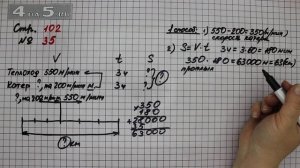 4-os.net
Стр. 102
№ 35
V t S
Теплоход 550 м/мин 3ч ?
Катер ?, на 200 м/мин 3ч ?
?, на 200 м/мин 550 м/мин
? км
1 способ: 1) 550-200=350(м/мин)
скорость катера
2) S=V·t 3ч=3·60=180 мин
350·180=63000м=63(км)
проплыл
350
180
28000
35
63000